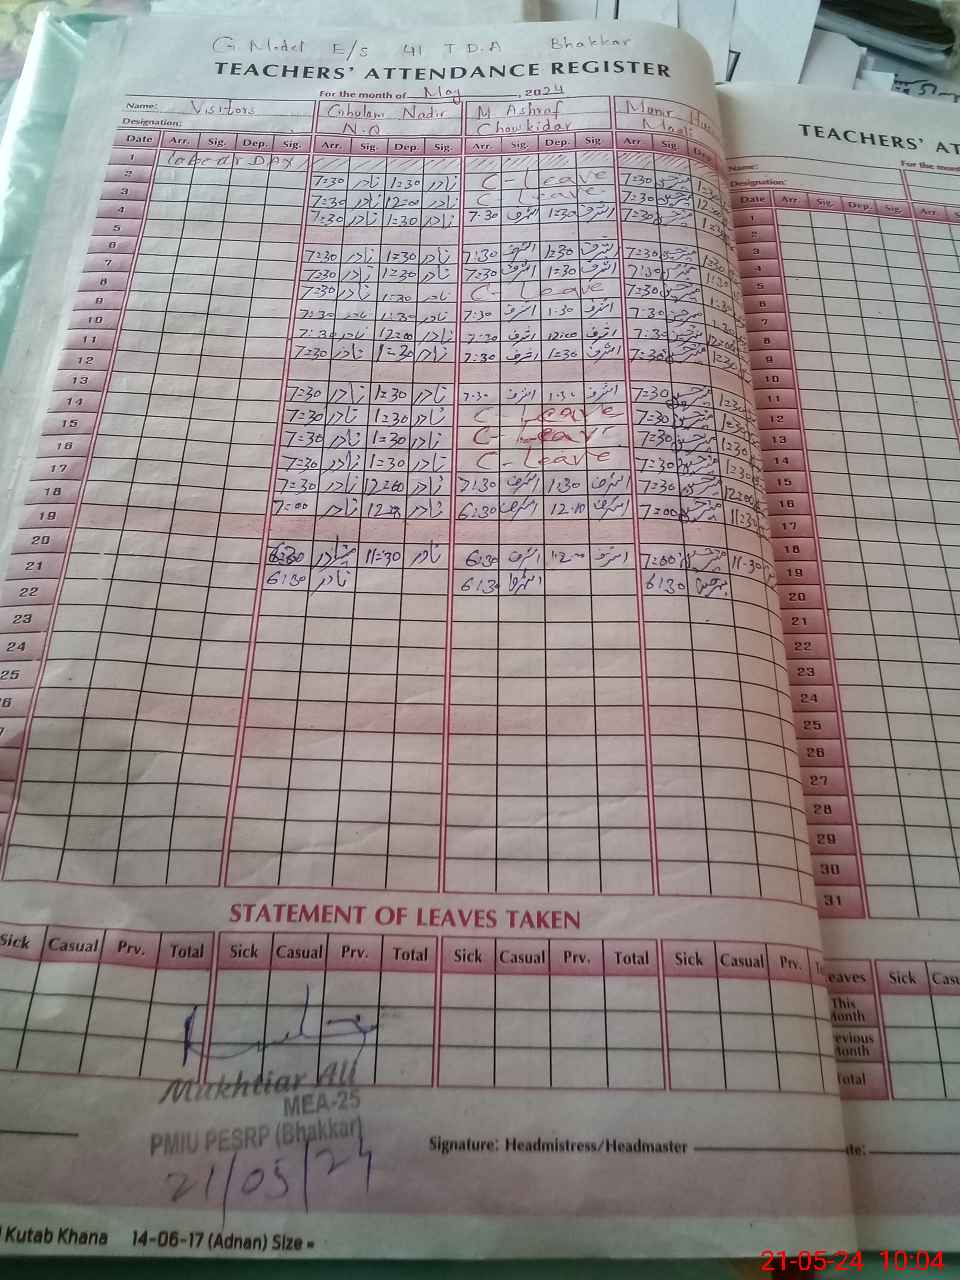 G. Model E/S 41 TDA Bhakkar
TEACHERS' ATTENDANCE REGISTER
For the month of May, 2024
Name: Visitors Ghulam Nadir M Ashraf Munir
Designation: N.Q Chowkidar Maali
Date Arr. Sig. Dep. Sig. Arr. Sig. Dep. Sig. Arr. Sig. Dep. Sig. Arr. Sig. Dep.
1 Labour DAY
2 7=30 نادر 1=30 نادر C-Leave 7=30
3 7=30 نادر 12=00 نادر C-Leave 7=30
4 7=30 نادر 1=30 نادر 7:30 اشرف 1=30 اشرف 7=30
5
6 7=30 نادر 1=30 نادر 7:30 اشرف 1:30 اشرف 7=30
7 7=30 نادر 1=30 نادر 7:30 اشرف 1=30 اشرف 7:30
8 7=30 نادر 1=30 نادر C-Leave 7=30
9 7=30 نادر 1=30 نادر 7:30 اشرف 1:30 اشرف 7:30
10 7:30 نادر 12=00 نادر 7:30 اشرف 12:00 اشرف 7:30
11 7=30 نادر 1=30 نادر 7:30 اشرف 1=30 اشرف 7=30
12
13 7=30 نادر 1=30 نادر 7:30 اشرف 1:30 اشرف 7=30
14 7=30 نادر 1=30 نادر C-Leave 7=30
15 7=30 نادر 1=30 نادر C-Leave 7=30
16 7=30 نادر 1=30 نادر C-Leave 7=30
17 7=30 نادر 12=00 نادر 7:30 اشرف 1:30 اشرف 7=30
18 7=00 نادر نادر 6:30 اشرف اشرف 7=00
19
20 6=30 نادر 11=30 نادر 6:30 اشرف 12=00 اشرف 7=00 11-30
21 6:30 نادر 6:30 اشرف 6:30
22
23
24
25
STATEMENT OF LEAVES TAKEN
Sick Casual Prv. Total Sick Casual Prv. Total Sick Casual Prv. Total Sick Casual Prv.
Mukhtiar Ali
MEA-25
PMIU PESRP (Bhakkar)
21/05/24
Signature: Headmistress/Headmaster
Kutab Khana 14-06-17 (Adnan) Size =
TEACHERS' AT
For the mon
Name:
Designation:
Date Arr. Sig. Dep. Sig. Arr. S
1
2
3
4
5
6
7
8
9
10
11
12
13
14
15
16
17
18
19
20
21
22
23
24
25
26
27
28
29
30
31
eaves Sick Cas
This
Month
evious
Month
Total
te:
21-05-24 10:04